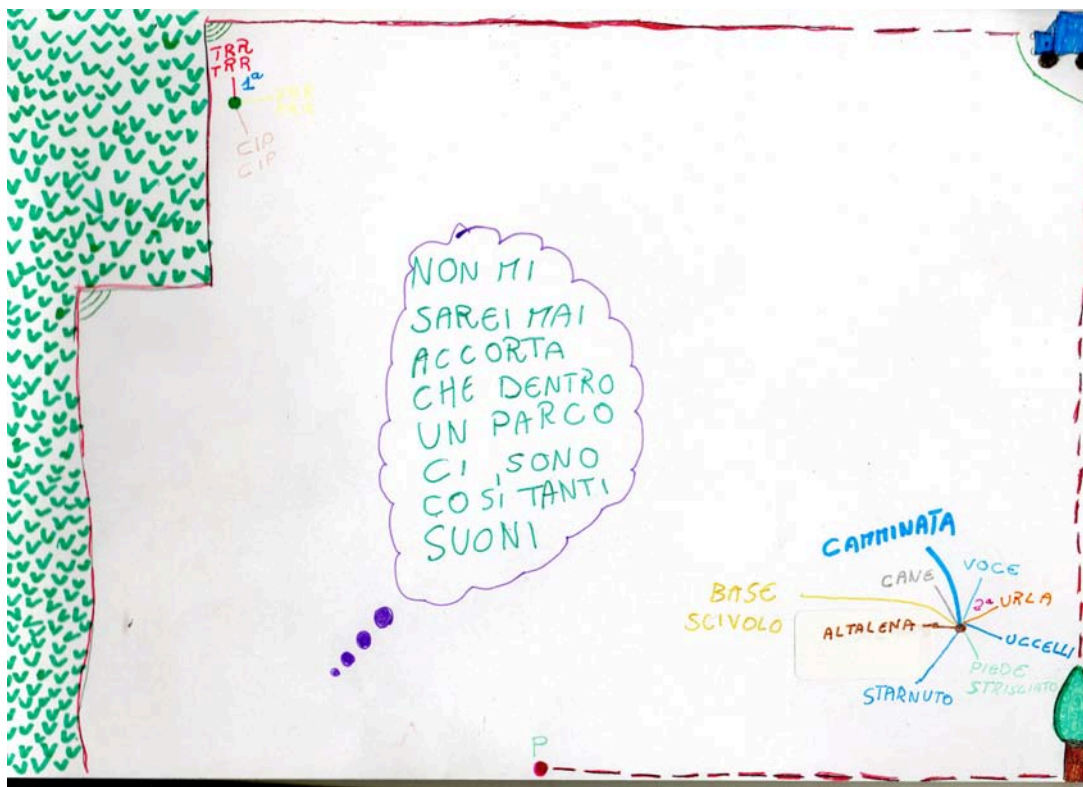 TRR
TRR
1ª
CIP
CIP
NON MI
SAREI MAI
ACCORTA
CHE DENTRO
UN PARCO
CI SONO
COSÌ TANTI
SUONI
CAMMINATA
CANE
VOCE
2ª URLA
BASE
SCIVOLO
ALTALENA
UCCELLI
PIEDE
STRISCIATO
STARNUTO
P